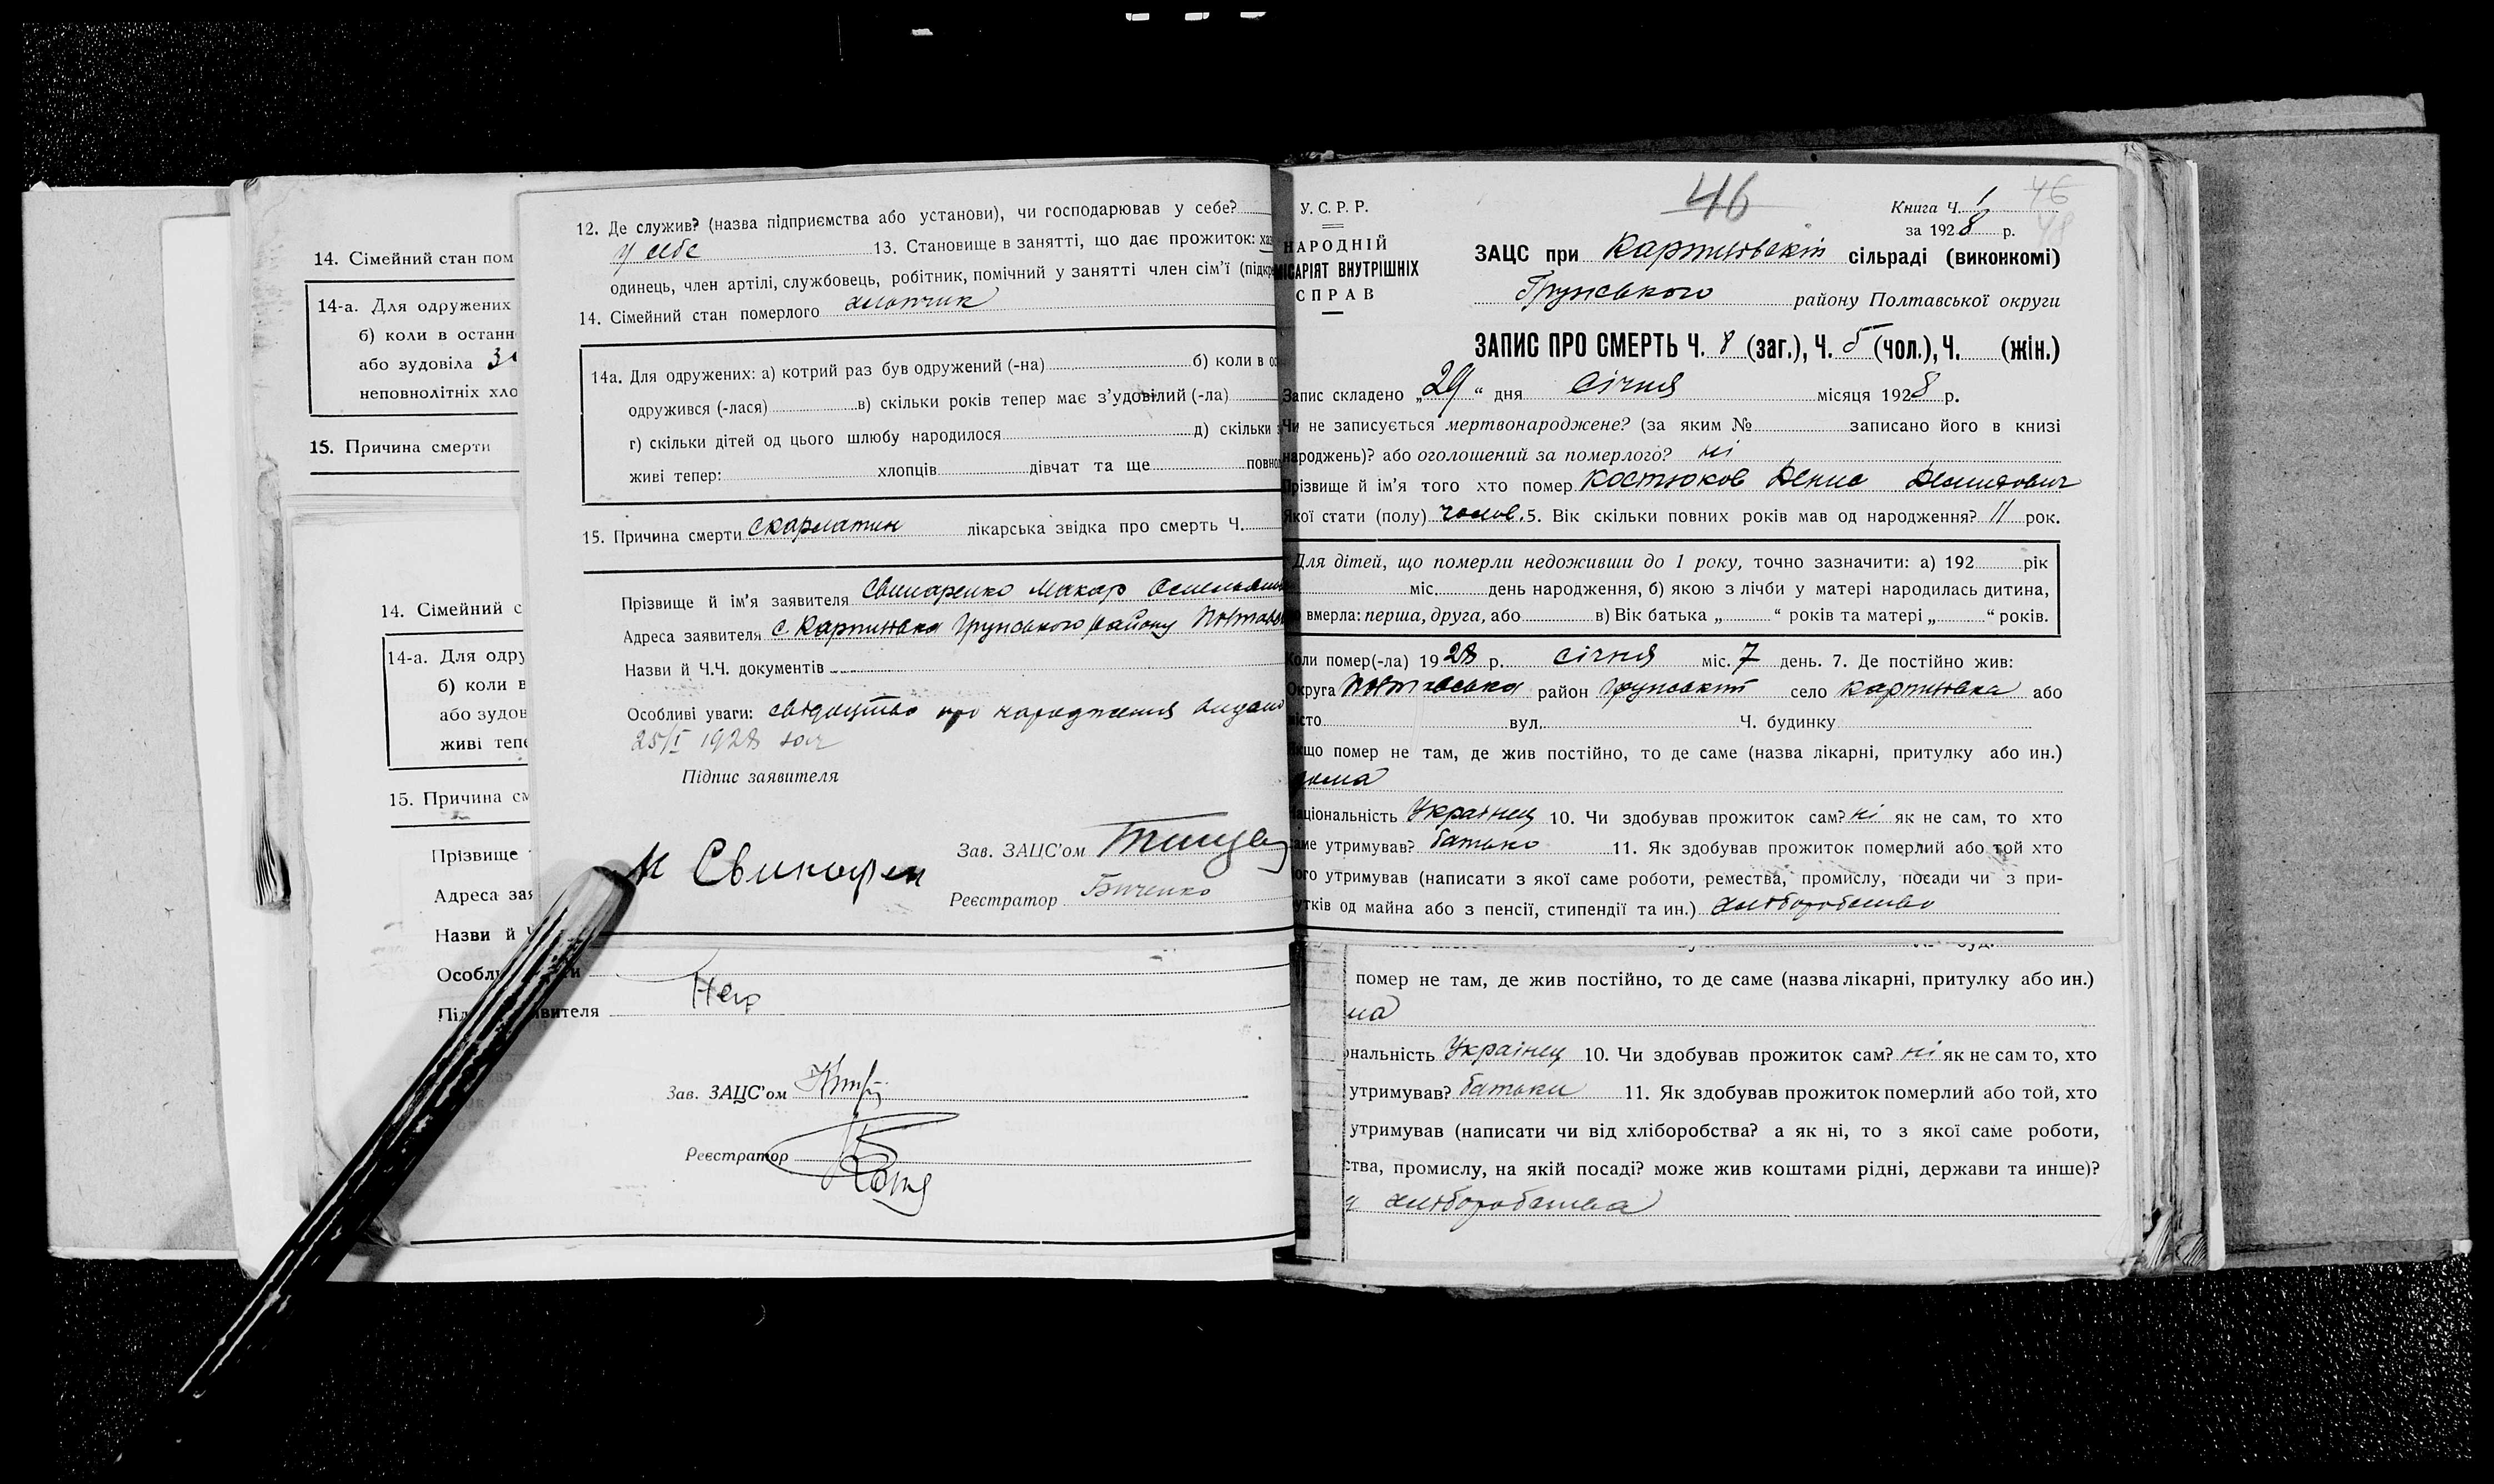 14. Сімейний стан пом
14-а. Для одружених
б) коли в останн
або зудовіла
неповнолітніх хло
15. Причина смерти
14. Сімейний с
14-а. Для одру
б) коли в
або зудов
живі тепе
15. Причина см
Прізвище
Адреса зая
Назви й Ч
Особл
12. Де служив? (назва підприємства або установи), чи господарював у себе?
у себе 13. Становище в занятті, що дає прожиток: хаз
одинець, член артілі, службовець, робітник, помічний у занятті член сім'ї (підкре
14. Сімейний стан померлого хлопчик
14а. Для одружених: а) котрий раз був одружений (-на) б) коли в ос
одружився (-лася) в) скільки років тепер має з'удовілий (-ла)
г) скільки дітей од цього шлюбу народилося д) скільки з
живі тепер: хлопців дівчат та ще повно
15. Причина смерти скарлатин лікарська звідка про смерть Ч.
Прізвище й ім'я заявителя Свинаренко Макар
Адреса заявителя с Карпилівка Грунського району Полтав
Назви й Ч.Ч. документів
Особливі уваги: свідоцтво про народження видано
25/I 1928
Підпис заявителя
М Свинарен
Зав. ЗАЦС'ом
Реєстратор
ивителя
Зав. ЗАЦС'ом
Реєстратор
46
46
48
У.С.Р.Р.
НАРОДНІЙ
МІСАРІЯТ ВНУТРІШНІХ
СПРАВ
Книга Ч. 1
за 1928 р.
ЗАЦС при Карпилівскій сільраді (виконкомі)
Грунського району Полтавської округи
ЗАПИС ПРО СМЕРТЬ Ч. 8 (заг.), Ч. 5 (чол.), Ч. (жін.)
Запис складено „29“ дня Січня місяця 1928 р.
Чи не записується мертвонароджене? (за яким № записано його в книзі
народжень)? або оголошений за померлого? ні
Прізвище й ім'я того хто помер Костюков Денис Демидович
Якої стати (полу) чолов. 5. Вік скільки повних років мав од народження? 11 рок.
Для дітей, що померли недоживши до 1 року, точно зазначити: а) 192 рік
міс. день народження, б) якою з лічби у матері народилась дитина,
вмерла: перша, друга, або в) Вік батька „ “ років та матері „ “ років.
Коли помер(-ла) 1928 р. січня міс. 7 день. 7. Де постійно жив:
Округа Полтавська район Грунський село Карпилівка або
місто вул. Ч. будинку
Якщо помер не там, де жив постійно, то де саме (назва лікарні, притулку або ин.)
дома
Національність Українец 10. Чи здобував прожиток сам? ні як не сам, то хто
саме утримував? батько 11. Як здобував прожиток померлий або той хто
його утримував (написати з якої саме роботи, ремества, промислу, посади чи з при-
бутків од майна або з пенсії, стипендії та ин.) хліборобство
помер не там, де жив постійно, то де саме (назва лікарні, притулку або ин.)
ма
ональність Українец 10. Чи здобував прожиток сам? ні як не сам то, хто
утримував? батьки 11. Як здобував прожиток померлий або той, хто
утримував (написати чи від хліборобства? а як ні, то з якої саме роботи,
ства, промислу, на якій посаді? може жив коштами рідні, держави та инше)?
хліборобства